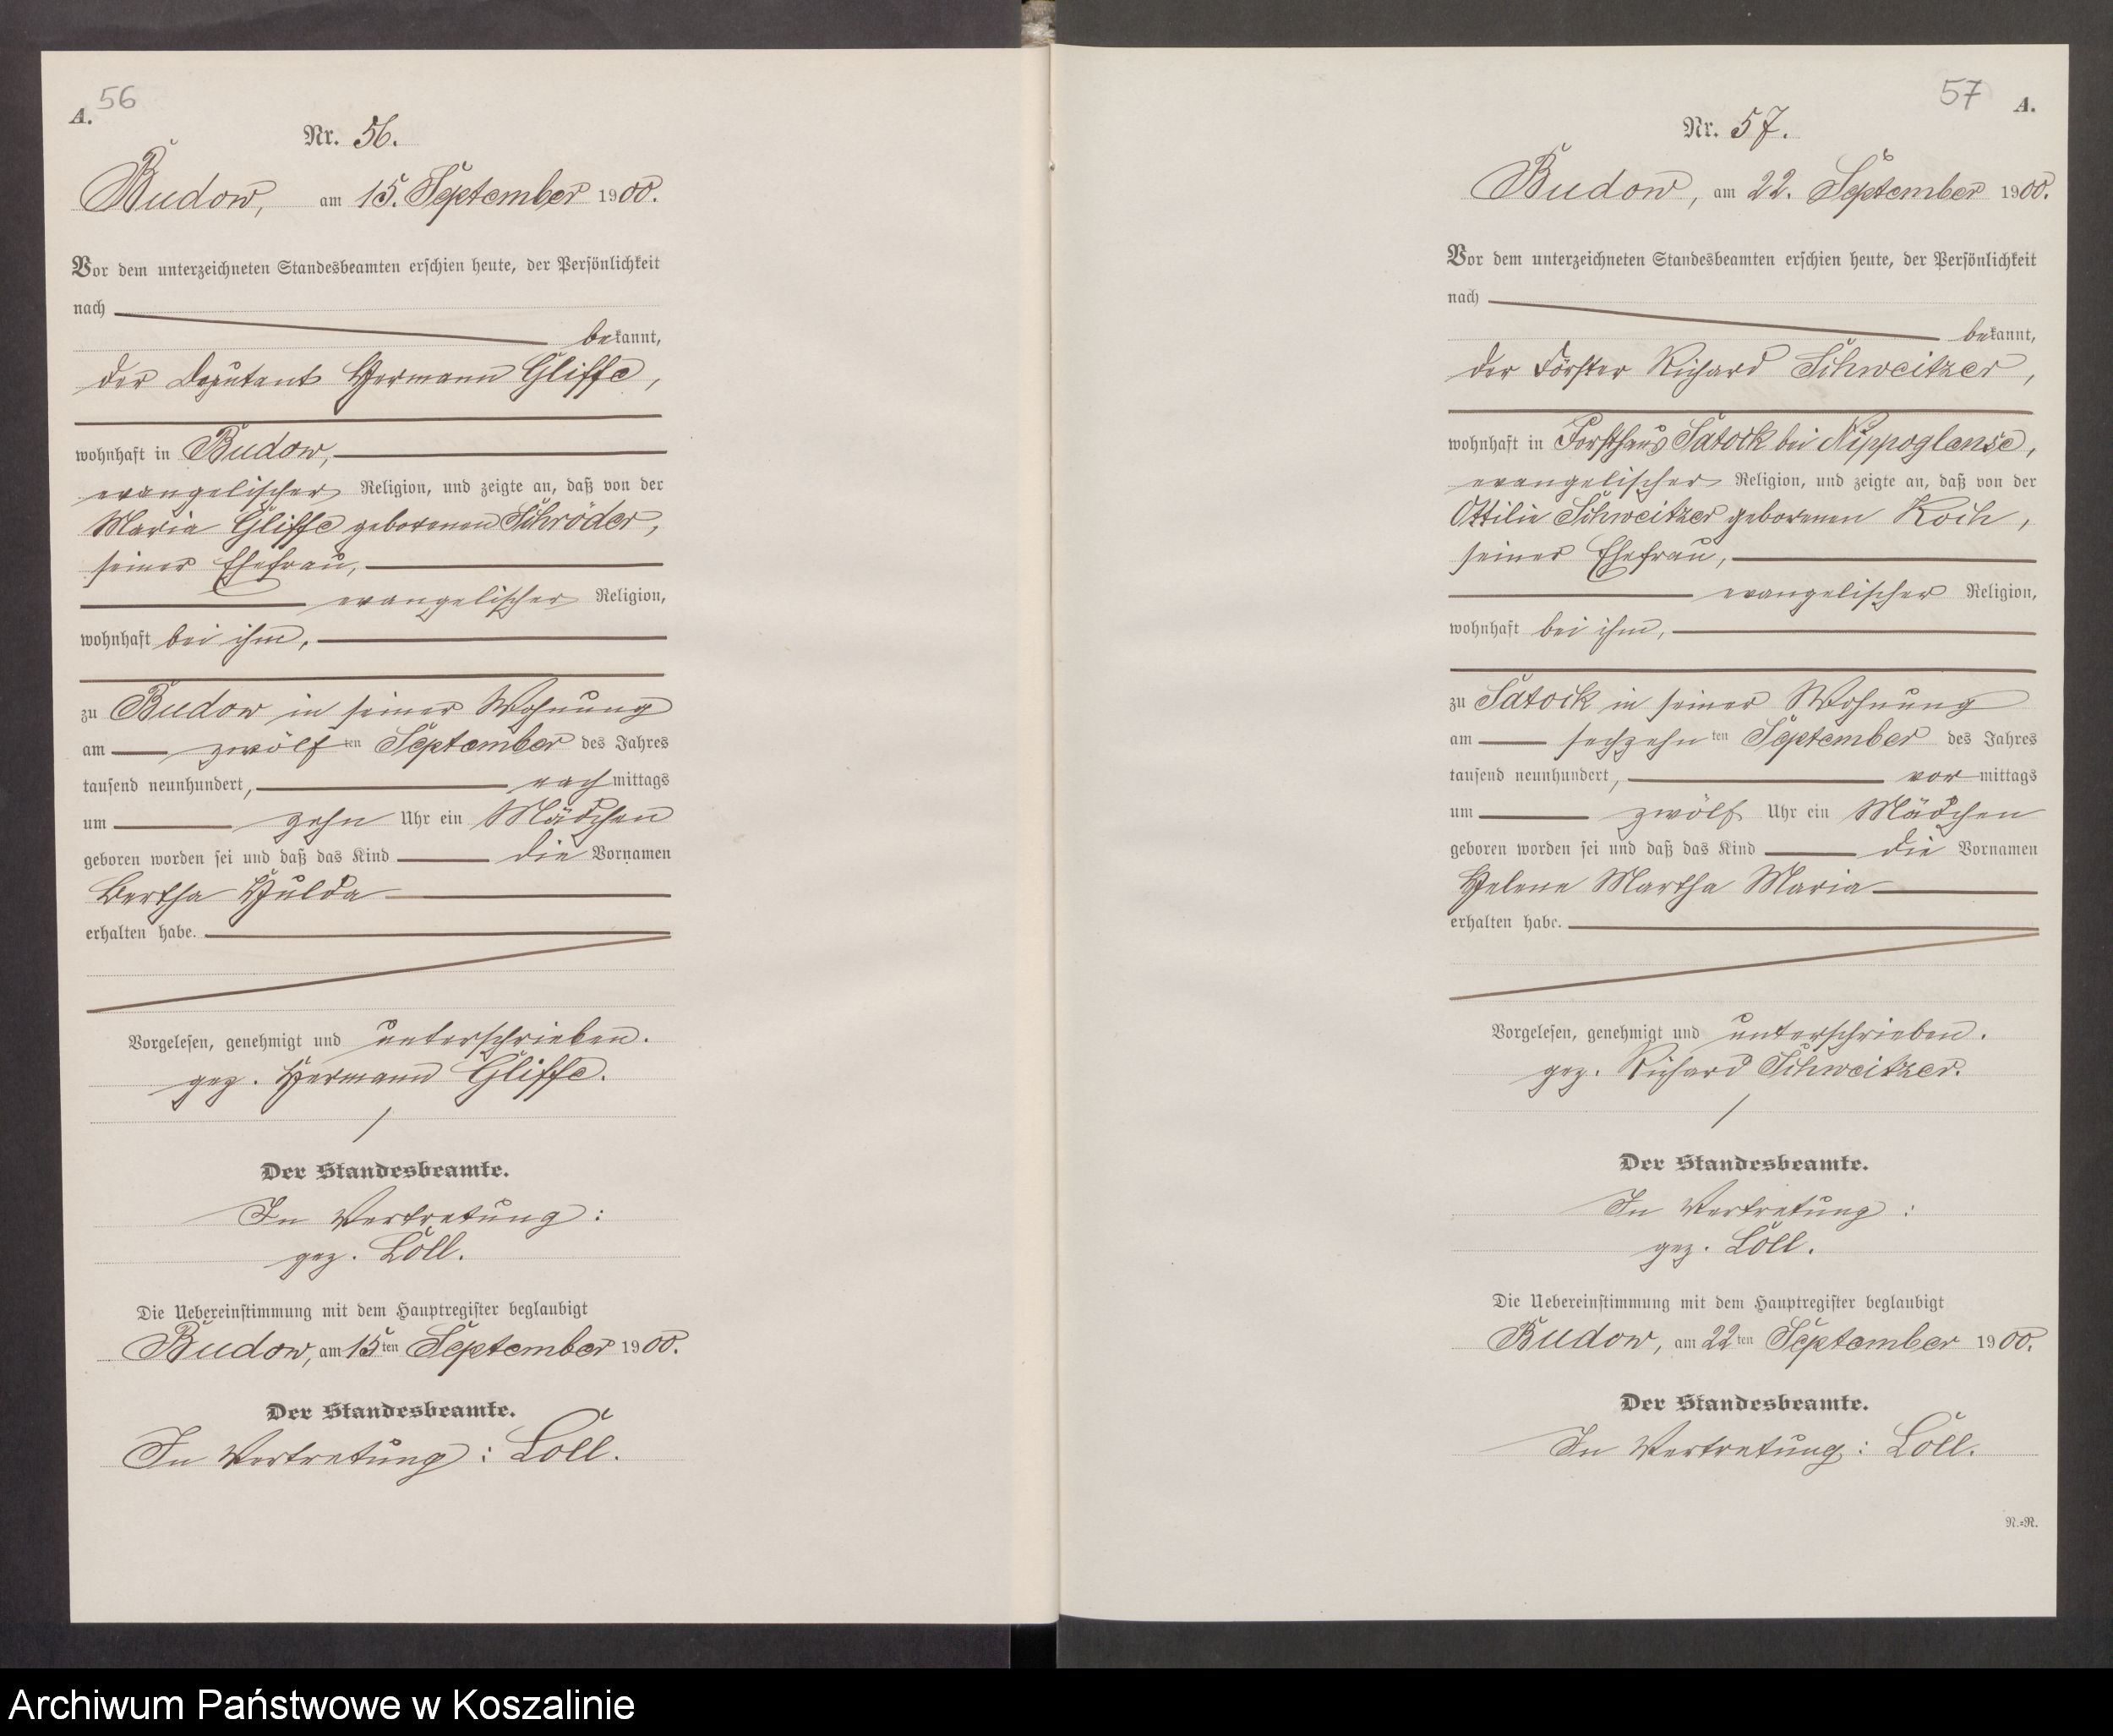 56
A.
Nr. 56.
Budow, am 15. September 1900.
Vor dem unterzeichneten Standesbeamten erschien heute, der Persönlichkeit
nach
bekannt,
der Deputant Hermann Gliffe,
wohnhaft in Budow,
evangelischer Religion, und zeigte an, daß von der
Maria Gliffe geborenen Schröder,
seiner Ehefrau,
evangelischer Religion,
wohnhaft bei ihm,
zu Budow in seiner Wohnung
am zwölften September des Jahres
tausend neunhundert, nachmittags
um zehn Uhr ein Mädchen
geboren worden sei und daß das Kind die Vornamen
Bertha Hulda
erhalten habe.
Vorgelesen, genehmigt und unterschrieben.
gez. Hermann Gliffe.
Der Standesbeamte.
In Vertretung:
gez. Loll.
Die Uebereinstimmung mit dem Hauptregister beglaubigt
Budow, am 15ten September 1900.
Der Standesbeamte.
In Vertretung: Loll.
57
A.
Nr. 57.
Budow, am 22. September 1900.
Vor dem unterzeichneten Standesbeamten erschien heute, der Persönlichkeit
nach
bekannt,
der Förster Richard Schweitzer,
wohnhaft in Forsthaus Satock bei Nippoglense,
evangelischer Religion, und zeigte an, daß von der
Ottilie Schweitzer geborenen Koch,
seiner Ehefrau,
evangelischer Religion,
wohnhaft bei ihm,
zu Satock in seiner Wohnung
am sechzehnten September des Jahres
tausend neunhundert, vormittags
um zwölf Uhr ein Mädchen
geboren worden sei und daß das Kind die Vornamen
Helene Martha Maria
erhalten habe.
Vorgelesen, genehmigt und unterschrieben.
gez. Richard Schweitzer.
Der Standesbeamte.
In Vertretung:
gez. Loll.
Die Uebereinstimmung mit dem Hauptregister beglaubigt
Budow, am 22ten September 1900.
Der Standesbeamte.
In Vertretung: Loll.
N.=R.
Archiwum Państwowe w Koszalinie